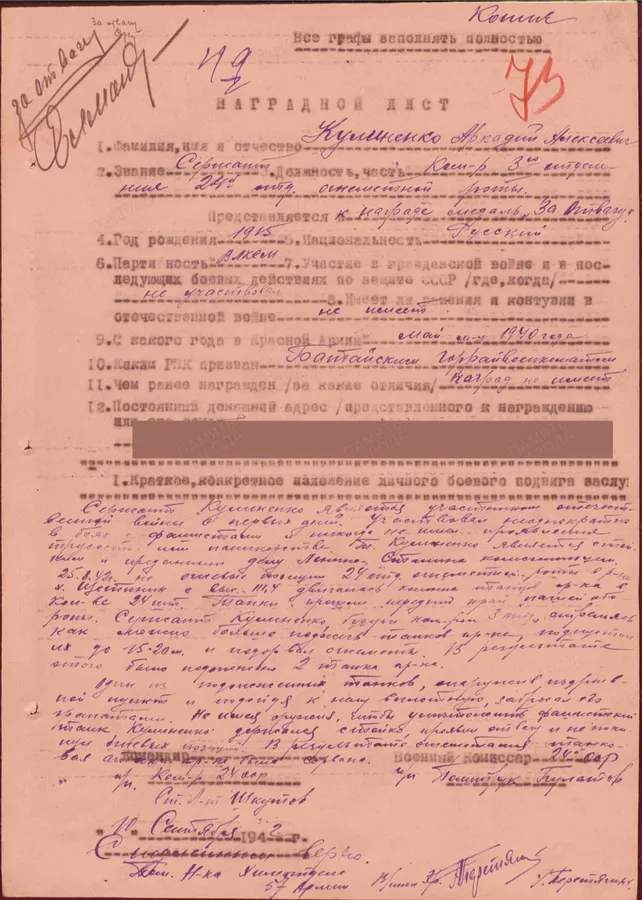 Копия
За отвагу
Все графы заполнять полностью
за отвагу
НАГРАДНОЙ ЛИСТ
1.Фамилия,имя и отчество Кулиненко Аркадий Алексеевич
2.Звание Сержант 3.Должность,часть Ком-р 3го отделе-
ния 24й отд. огнеметной роты.
Представляется к награде медаль "За Отвагу"
4.Год рождения 1915 5.Национальность Русский
6.Партийность ВЛКСМ 7.Участие в гражданской войне и в пос-
ледующих боевых действиях по защите СССР /где,когда/
не участвовал 8.Имеет ли ранения и контузии в
отечественной войне не имеет
9.С какого года в Красной Армии май м-ц 1940 года
10.Каким РВК призван Батайским горрайвоенкоматом
11.Чем ранее награжден /за какие отличия/ наград не имеет
12.Постоянный домашний адрес /представленного к награждению
или его
1.Краткое,конкретное изложение личного боевого подвига заслу
Сержант Кулиненко является участником отечест-
венной войны с первых дней. Участвовал неоднократно
в боях с фашистами и никогда не имел проявления
трусости или паникерства. Тов. Кулиненко является
и преданным делу Ленина, Сталина комсомольцем.
25.8.42г. на огневые позиции 24 отд. огнеметной роты в р-не
с выс. 111.4 двигалась колонна танков пр-ка в
кол-ве 24 шт. Танки прошли передний край нашей обо
роны. Сержант Кулиненко, будучи ком-ром 3 отд., стремясь
как можно больше поджечь танков пр-ка, подпустил
их до 15-20м. и подорвал огнеметы. В результате
этого было подожжено 2 танка пр-ка.
Один из подожженных танков, обнаружив подрыв-
ной пункт и подойдя к нему вплотную, забросал его
гранатами. Не имея оружия, чтобы уничтожить фашистский
танк Кулиненко держался стойко, проявил отвагу и не поки-
нул боевых позиций. В результате огнеметания танко-
вая атака пр-ка была сорвана.
Командир Военный Комиссар 24 оор
п/п. Ком-р 24 оор п/п Политрук
Ст. л-т Шкутов
"10" Сентября 1942 г.
С подлинным верно.
Пом. Н-ка Химотдела
57 Армии